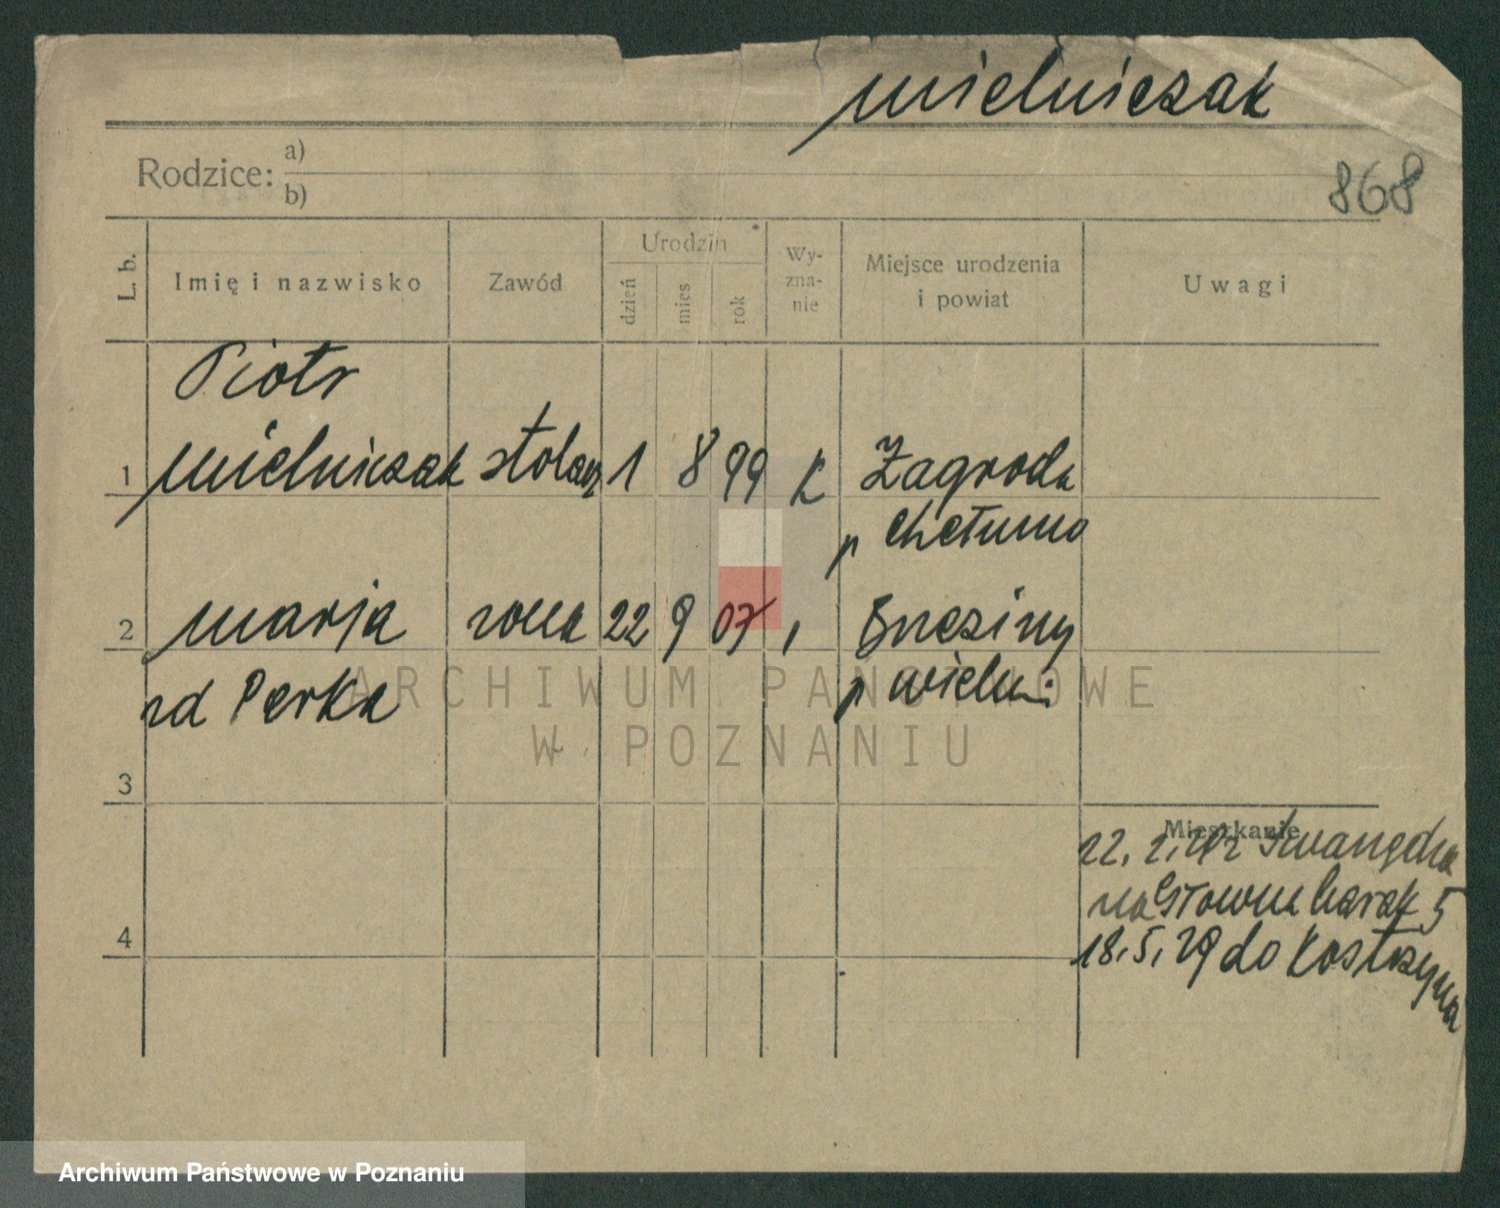 Mielniczak
868
Rodzice: a)
b)
L. b. Imię i nazwisko Zawód Urodzin dzień mies rok Wyznanie Miejsce urodzenia i powiat Uwagi
Piotr
1 Mielniczak stolarz 1 8 99 K Zagroda
p Chełmno
2 Marja żona 22 9 07 " Brzeziny
zd Perka p Wieluń
3
Mieszkanie
22.
na Główna barak 5
4 18.5.29 do Kostrzyna
ARCHIWUM PAŃSTWOWE
W POZNANIU
Archiwum Państwowe w Poznaniu